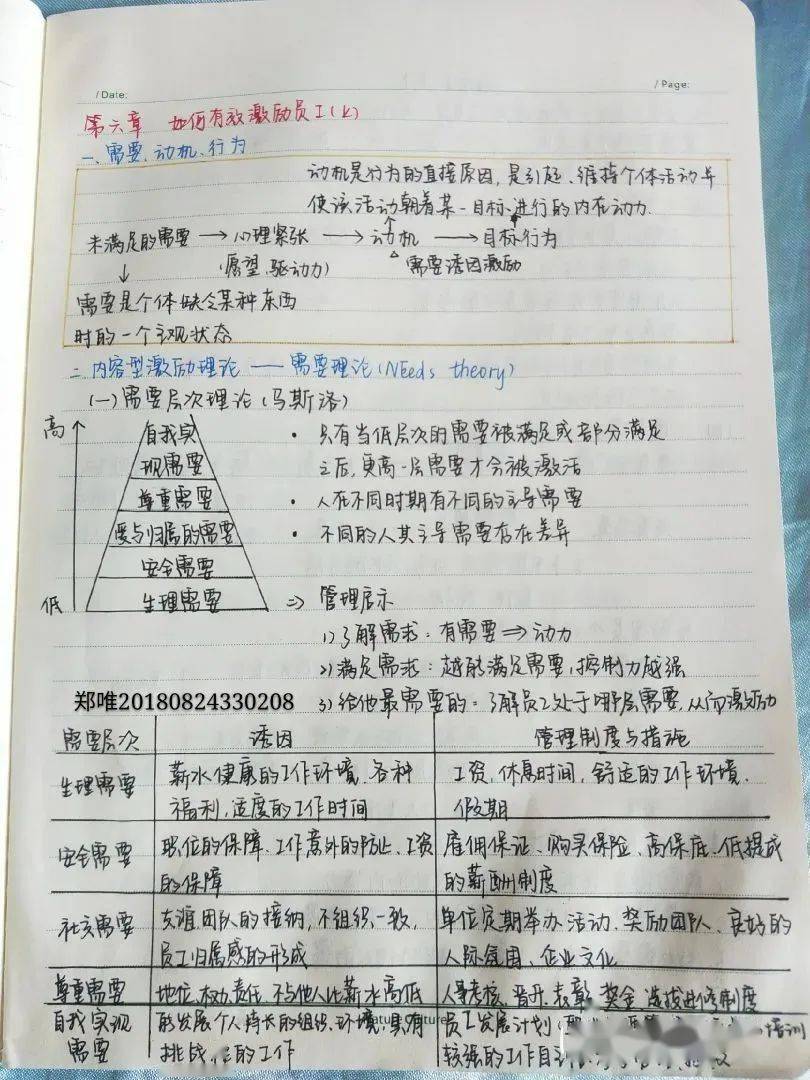 / Date:
/ Page:
第六章 如何有效激励员工(上)
一、需要、动机、行为
动机是行为的直接原因,是引起、维持个体活动并
使该活动朝着某一目标进行的内在动力.
未满足的需要 → 心理紧张 → 动机 → 目标行为
(愿望、驱动力) 需要诱因激励
↓
需要是个体缺乏某种东西
时的一个主观状态
二、内容型激励理论 —— 需要理论(NEeds theory)
(一)需要层次理论(马斯洛)
高
自我实
现需要
尊重需要
爱与归属的需要
安全需要
生理需要
低
· 只有当低层次的需要被满足或部分满足
之后,更高一层需要才会被激活
· 人在不同时期有不同的主导需要
· 不同的人其主导需要存在差异
=> 管理启示
1)了解需求:有需要 => 动力
2)满足需求:越能满足需要,控制力越强
郑唯20180824330208
3)给他最需要的:了解员工处于哪层需要,从而激励
需要层次 诱因 管理制度与措施
生理需要 薪水、健康的工作环境、各种
福利,适度的工作时间
工资,休息时间,舒适的工作环境.
假期
安全需要 职位的保障、工作意外的防止、工资
的保障
雇佣保证、购买保险、高保底、低提成
的薪酬制度
社交需要 友谊团队的接纳,不组织一致,
员工归属感的形成
单位定期举办活动、奖励团队、良好的
人际氛围、企业文化
尊重需要 地位、权力、责任、不与他人比薪水高低
人事考核、晋升、表彰、奖金、选拔进修制度
自我实现
需要
能发展个人特长的组织、环境、具有
挑战性的工作
员工发展计划 培训
较强的工作自